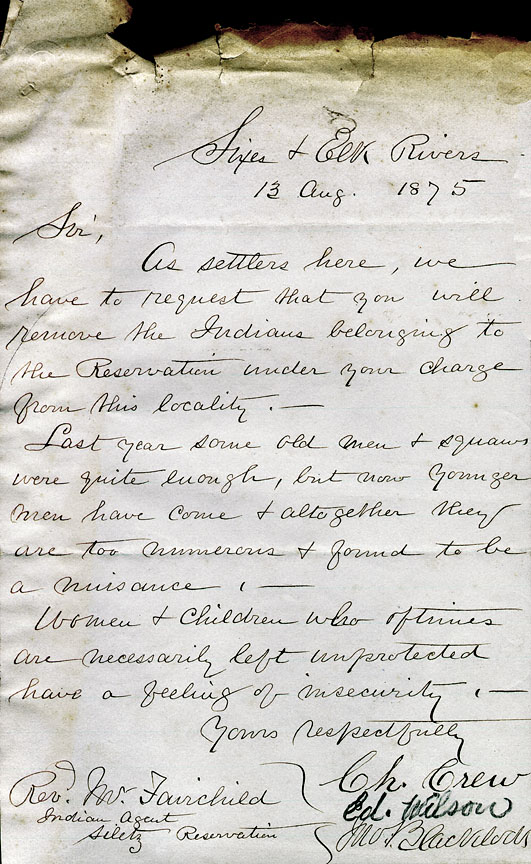 Sixes & Elk Rivers
13 Aug. 1875
Sir,
As settlers here, we
have to request that you will
remove the Indians belonging to
the Reservation under your charge
from this locality. —
Last year some old men & squaws
were quite enough, but now younger
men have come & altogether they
are too numerous & found to be
a nuisance. —
Women & Children who oftimes
are necessarily left unprotected
have a feeling of insecurity. —
Yours respectfully
Ch. Crew
Ed. Wilson
Jno. Blacklock
Revd. Mr. Fairchild
Indian Agent
Siletz Reservation